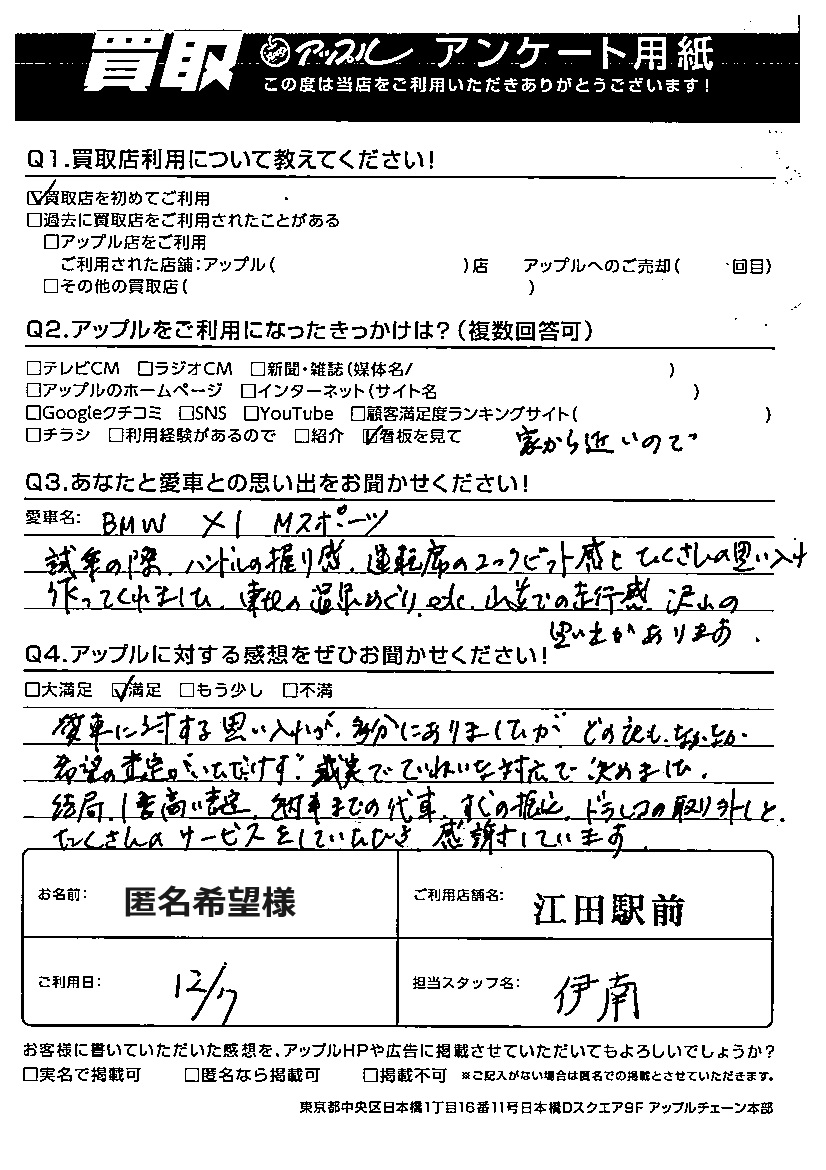 買取 アップル アンケート用紙
この度は当店をご利用いただきありがとうございます!
Q1.買取店利用について教えてください!
☑買取店を初めてご利用
□過去に買取店をご利用されたことがある
□アップル店をご利用
ご利用された店舗:アップル( )店 アップルへのご売却( 回目)
□その他の買取店( )
Q2.アップルをご利用になったきっかけは?(複数回答可)
□テレビCM □ラジオCM □新聞・雑誌(媒体名/ )
□アップルのホームページ □インターネット(サイト名 )
□Googleクチコミ □SNS □YouTube □顧客満足度ランキングサイト( )
□チラシ □利用経験があるので □紹介 ☑看板を見て 家から近いので
Q3.あなたと愛車との思い出をお聞かせください!
愛車名: BMW X1 Mスポーツ
試乗の際、ハンドルの握り感、運転席のコックピット感とたくさんの思い入れ
作ってくれました。 温泉めぐり、etc. 山道での走行感 沢山の
思い出があります。
Q4.アップルに対する感想をぜひお聞かせください!
□大満足 ☑満足 □もう少し □不満
愛車に対する思い入れが、多分にありましたが どの社も、なかなか
希望の査定がいただけず、誠実でていねいな対応で決めました。
結局、1番高い査定、納車までの代車、すぐの振込、ドラレコの取り外しと、
たくさんのサービスをしていただき、感謝しています。
お名前: 匿名希望様 ご利用店舗名: 江田駅前
ご利用日: 12/7 担当スタッフ名: 伊南
お客様に書いていただいた感想を、アップルHPや広告に掲載させていただいてもよろしいでしょうか?
□実名で掲載可 □匿名なら掲載可 □掲載不可 ※ご記入がない場合は匿名での掲載とさせていただきます。
東京都中央区日本橋1丁目16番11号日本橋Dスクエア9F アップルチェーン本部